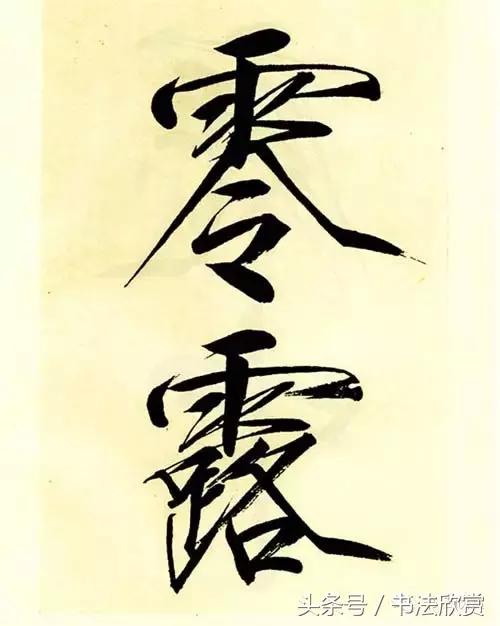 零
露
头条号 / 书法欣赏